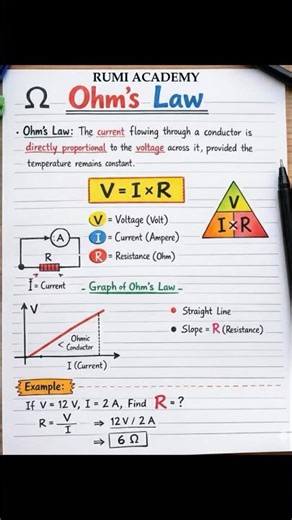 RUMI ACADEMY
Ω Ohm's Law
• Ohm's Law: The current flowing through a conductor is
directly proportional to the voltage across it, provided the
temperature remains constant.
V = I × R
V = Voltage (Volt)
I = Current (Ampere)
R = Resistance (Ohm)
V
I × R
A
R
I = Current
- Graph of Ohm's Law -
V
< Ohmic
Conductor
I (Current)
• Straight Line
• Slope = R (Resistance)
Example:
If V = 12 V, I = 2 A, Find R = ?
R = V/I ⇒ 12V / 2 A
⇒ 6 Ω